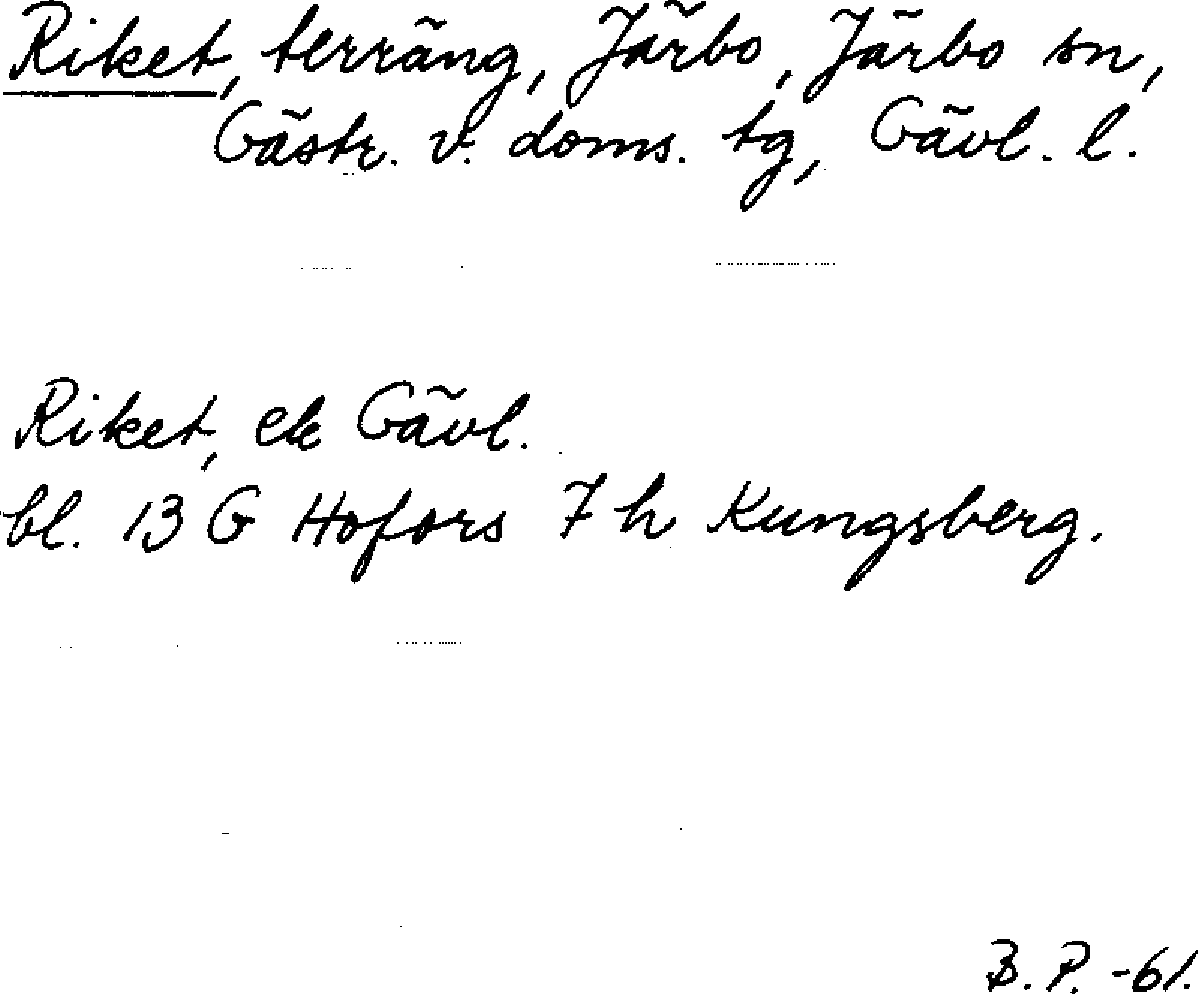 Riket, terräng, Järbo, Järbo sn,
Gästr. v. doms. tg, Gävl. l.
Riket, ek Gävl.
bl. 13 G Hofors 7 h Kungsberg.
B. P. -61.